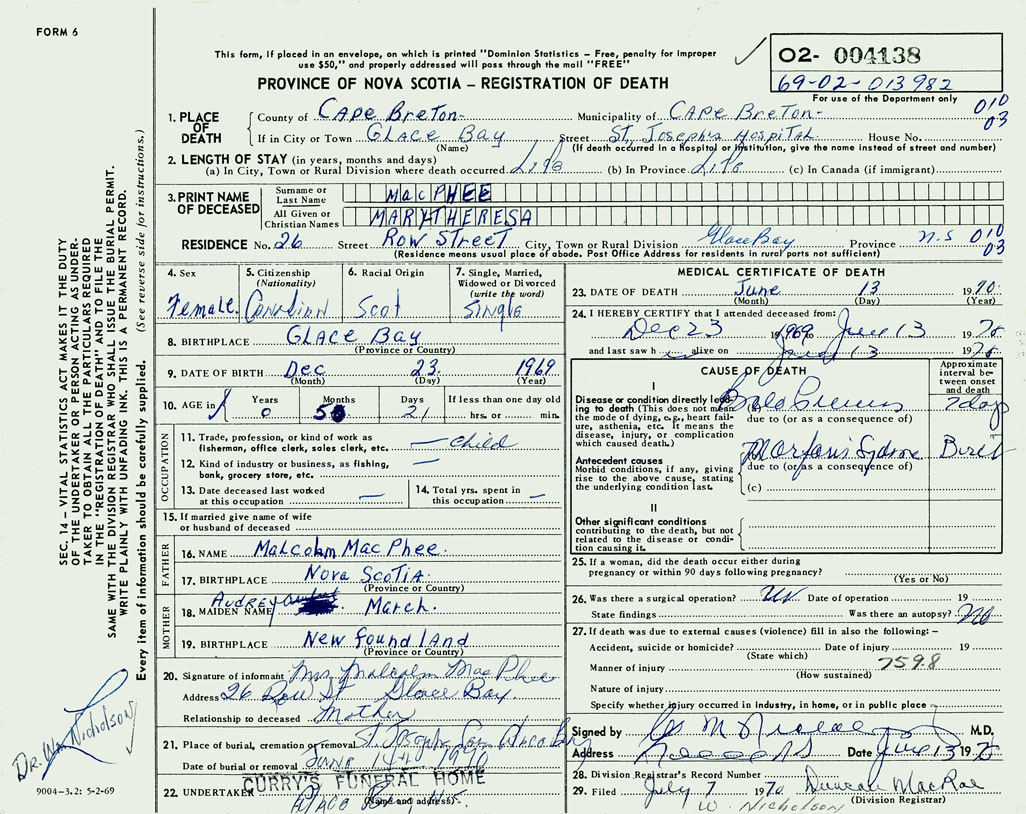 FORM 6
This form, if placed in an envelope, on which is printed "Dominion Statistics – Free, penalty for improper
use $50," and properly addressed will pass through the mail "FREE"
PROVINCE OF NOVA SCOTIA – REGISTRATION OF DEATH
O2- 004138
69-02-013982
For use of the Department only
010
03
1. PLACE OF DEATH
County of Cape Breton Municipality of Cape Breton
If in City or Town Glace Bay Street St. Joseph's Hospital House No.
(Name) (If death occurred in a hospital or institution, give the name instead of street and number)
2. LENGTH OF STAY (in years, months and days)
(a) In City, Town or Rural Division where death occurred Life (b) In Province Life (c) In Canada (if immigrant)
3. PRINT NAME OF DECEASED
Surname or Last Name MacPHEE
All Given or Christian Names MARY THERESA
RESIDENCE No. 26 Street Row Street City, Town or Rural Division Glace Bay Province N.S 010
03
(Residence means usual place of abode. Post Office Address for residents in rural parts not sufficient)
4. Sex
Female.
5. Citizenship
(Nationality)
Canadian
6. Racial Origin
Scot
7. Single, Married,
Widowed or Divorced
(write the word)
Single
8. BIRTHPLACE Glace Bay
(Province or Country)
9. DATE OF BIRTH Dec 23. 1969
(Month) (Day) (Year)
10. AGE in Years Months Days If less than one day old
0 5 21 hrs. or min.
OCCUPATION
11. Trade, profession, or kind of work as
fisherman, office clerk, sales clerk, etc. — child
12. Kind of industry or business, as fishing,
bank, grocery store, etc. —
13. Date deceased last worked
at this occupation —
14. Total yrs. spent in
this occupation —
15. If married give name of wife
or husband of deceased
FATHER
16. NAME Malcolm MacPhee.
17. BIRTHPLACE Nova Scotia.
(Province or Country)
MOTHER
18. MAIDEN NAME Audrey March.
19. BIRTHPLACE Newfoundland
(Province or Country)
20. Signature of informant Mrs Malcolm MacPhee
Address 26 Row St Glace Bay
Relationship to deceased Mother
21. Place of burial, cremation or removal St Josephs
Date of burial or removal June 14 1970
22. UNDERTAKER CURRY'S FUNERAL HOME
(Name and address) Glace Bay N.S.
MEDICAL CERTIFICATE OF DEATH
23. DATE OF DEATH June 13 1970.
(Month) (Day) (Year)
24. I HEREBY CERTIFY that I attended deceased from:
Dec 23 1969 June 13 1970
and last saw h alive on June 13 1970
CAUSE OF DEATH
Approximate interval between onset and death
I
Disease or condition directly leading to death (This does not mean the mode of dying, e.g., heart failure, asthenia, etc. It means the disease, injury, or complication which caused death.)
(a) 7 days
due to (or as a consequence of)
Antecedent causes
Morbid conditions, if any, giving rise to the above cause, stating the underlying condition last.
Marfans Syndrome Birth
due to (or as a consequence of)
(c)
II
Other significant conditions
contributing to the death, but not related to the disease or condition causing it.
25. If a woman, did the death occur either during
pregnancy or within 90 days following pregnancy?
(Yes or No)
26. Was there a surgical operation? Date of operation 19
State findings Was there an autopsy? no
27. If death was due to external causes (violence) fill in also the following: –
Accident, suicide or homicide? Date of injury 19
(State which)
7598
Manner of injury
(How sustained)
Nature of injury
Specify whether injury occurred in industry, in home, or in public place
Signed by M.D.
Address Date June 13 1970
28. Division Registrar's Record Number
29. Filed July 7 1970 Duncan MacRae
(Division Registrar)
W. Nicholson
SEC. 14 – VITAL STATISTICS ACT MAKES IT THE DUTY
OF THE UNDERTAKER OR PERSON ACTING AS UNDER-
TAKER TO OBTAIN ALL THE PARTICULARS REQUIRED
IN THE "REGISTRATION OF DEATH" AND TO FILE THE
SAME WITH THE DIVISION REGISTRAR WHO SHALL ISSUE THE BURIAL PERMIT.
WRITE PLAINLY WITH UNFADING INK. THIS IS A PERMANENT RECORD.
Every item of information should be carefully supplied. (See reverse side for instructions.)
Dr. Wm Nicholson
9004–3.2: 5-2-69